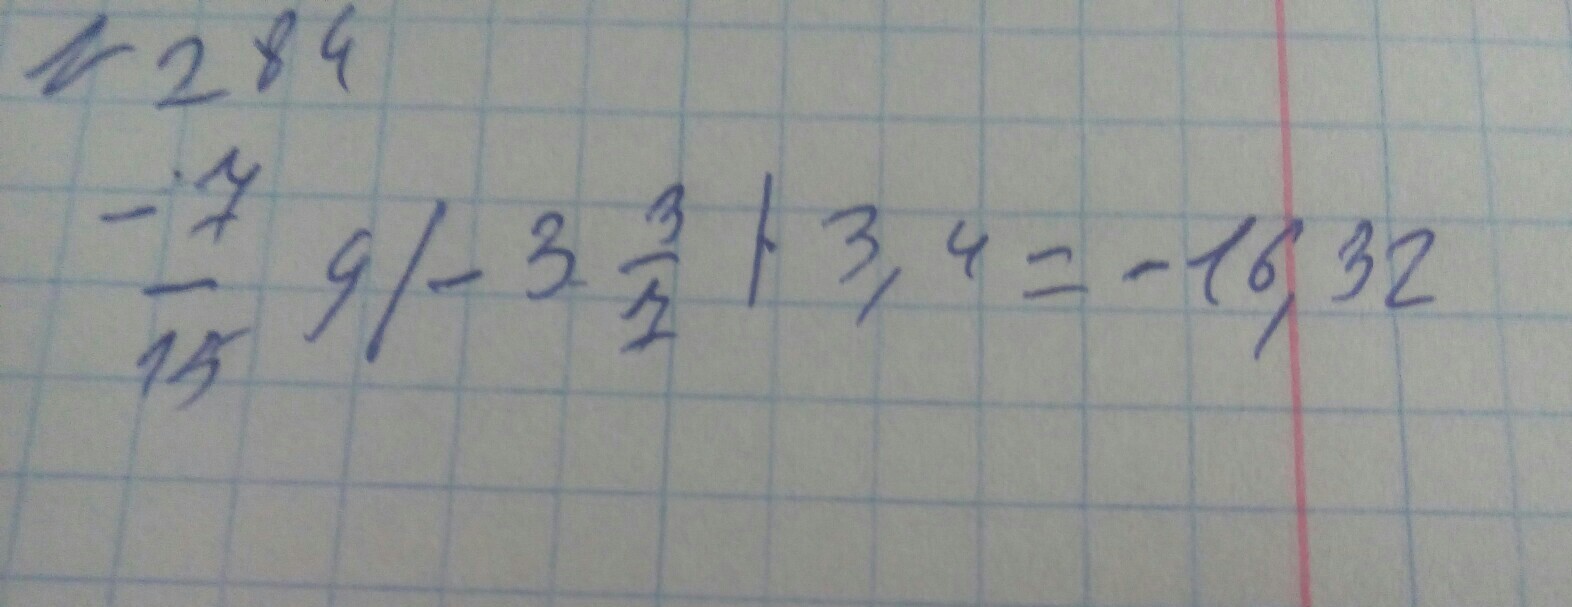 № 284
-7/15 9 |-3 3/7| · 3,4 = -16,32